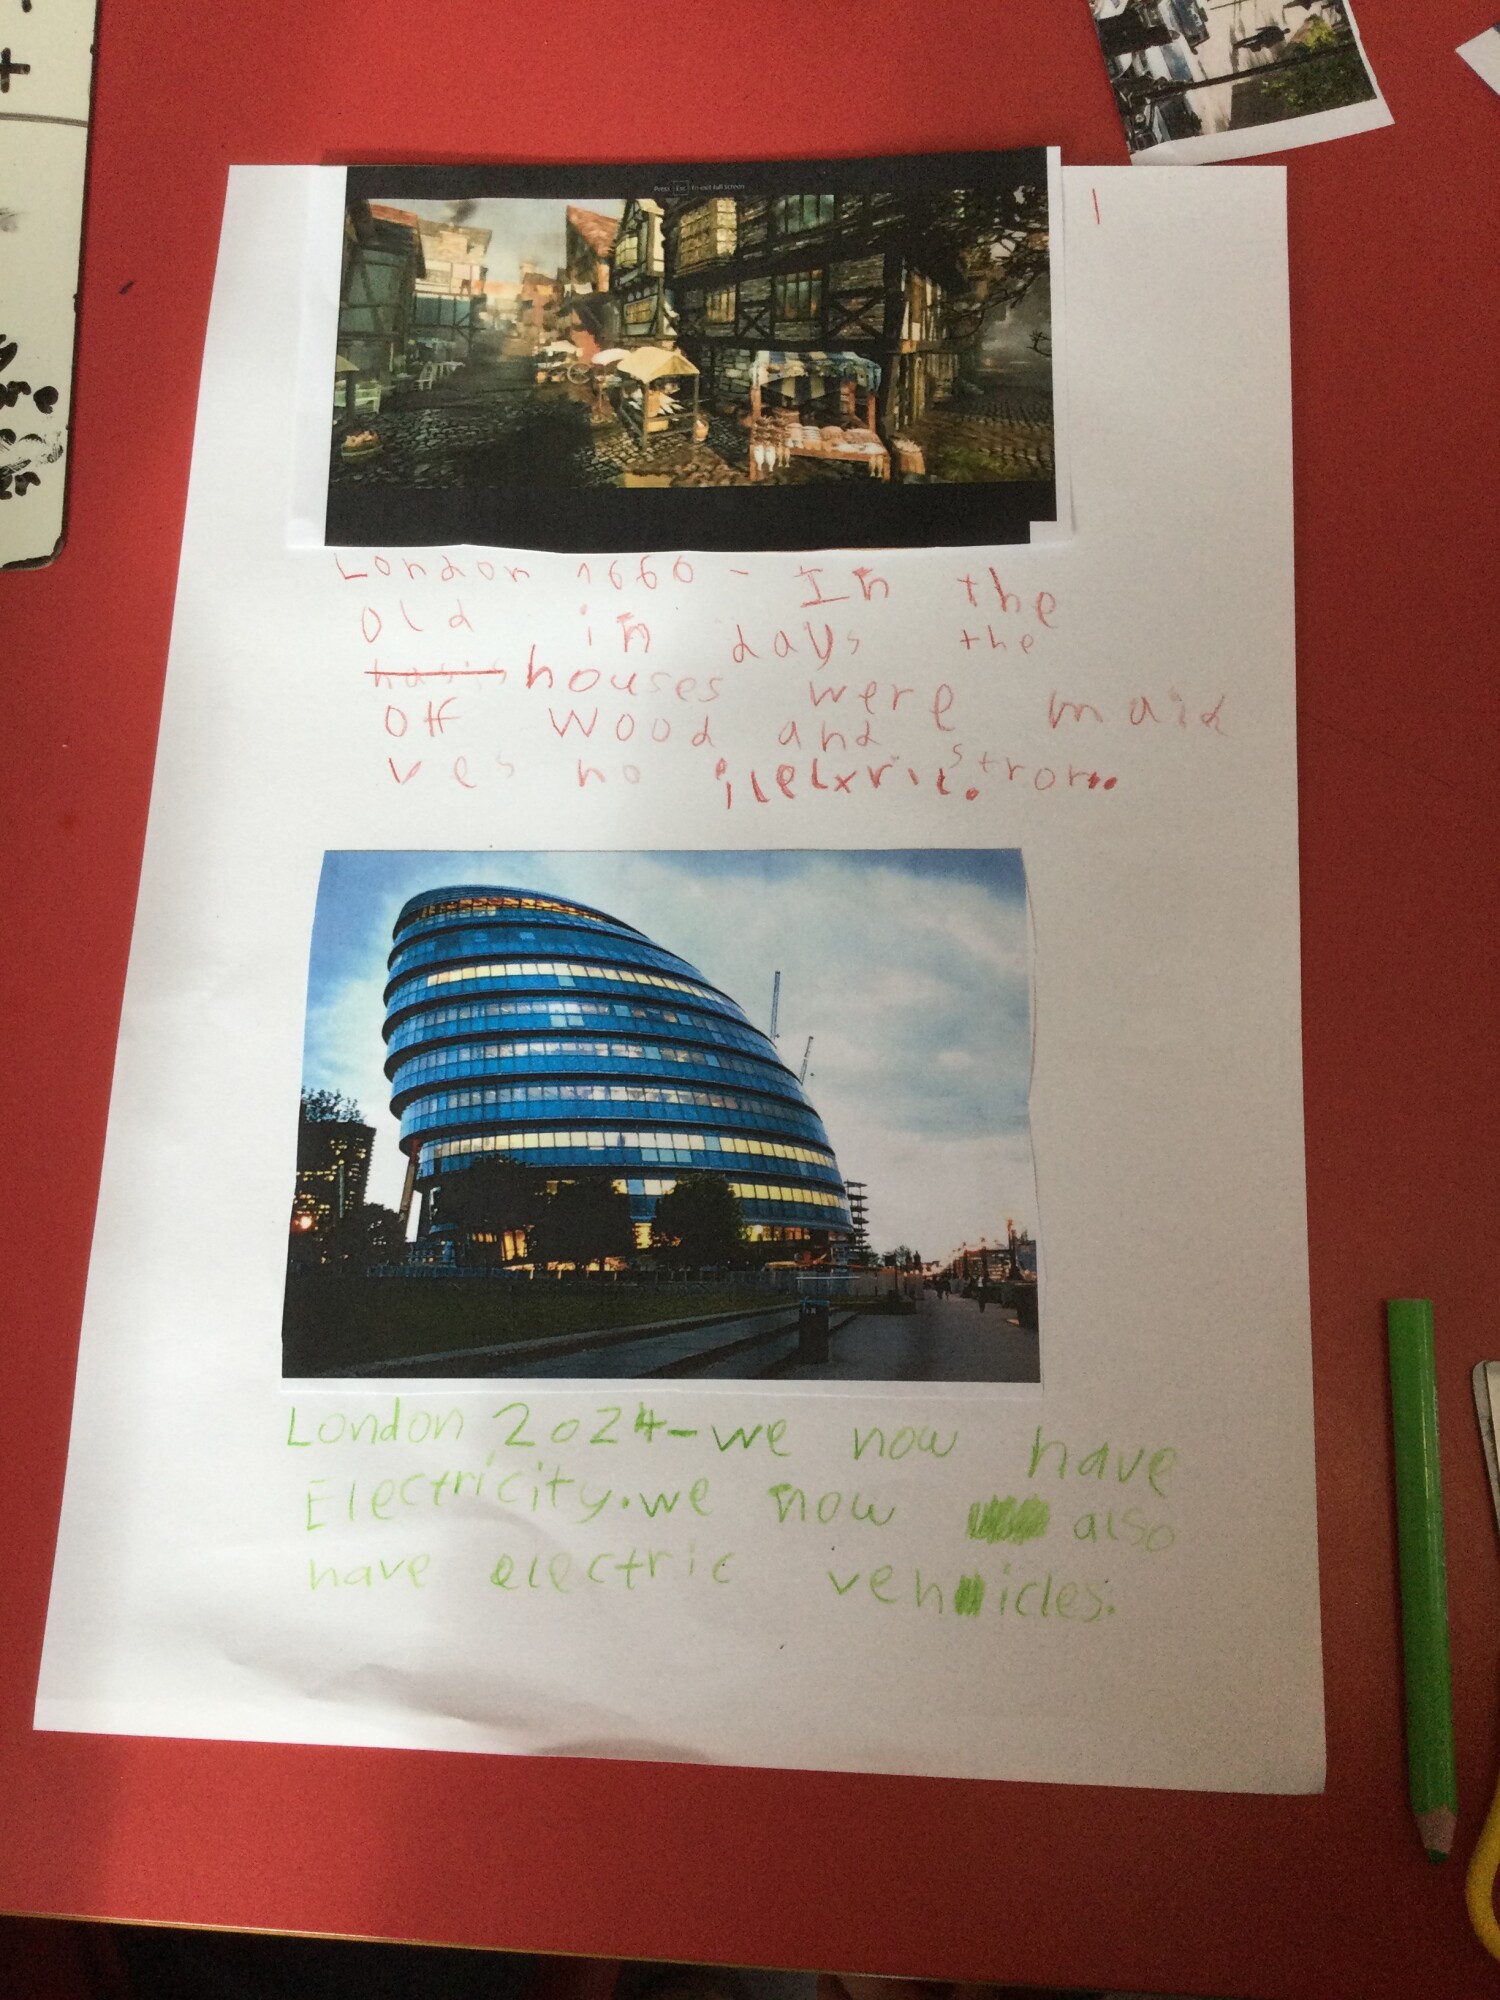 Press Esc to exit full screen
London 1666 - In the
old in days the
houses were maid
off wood and
ves no ilelxric. strom.
London 2024-we now have
Electricity.we now also
have electric vehicles.